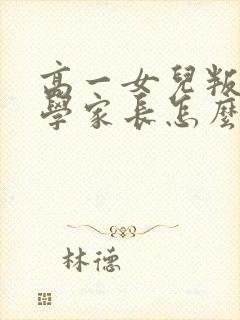 高一女兒叛
學家長怎麼
林德